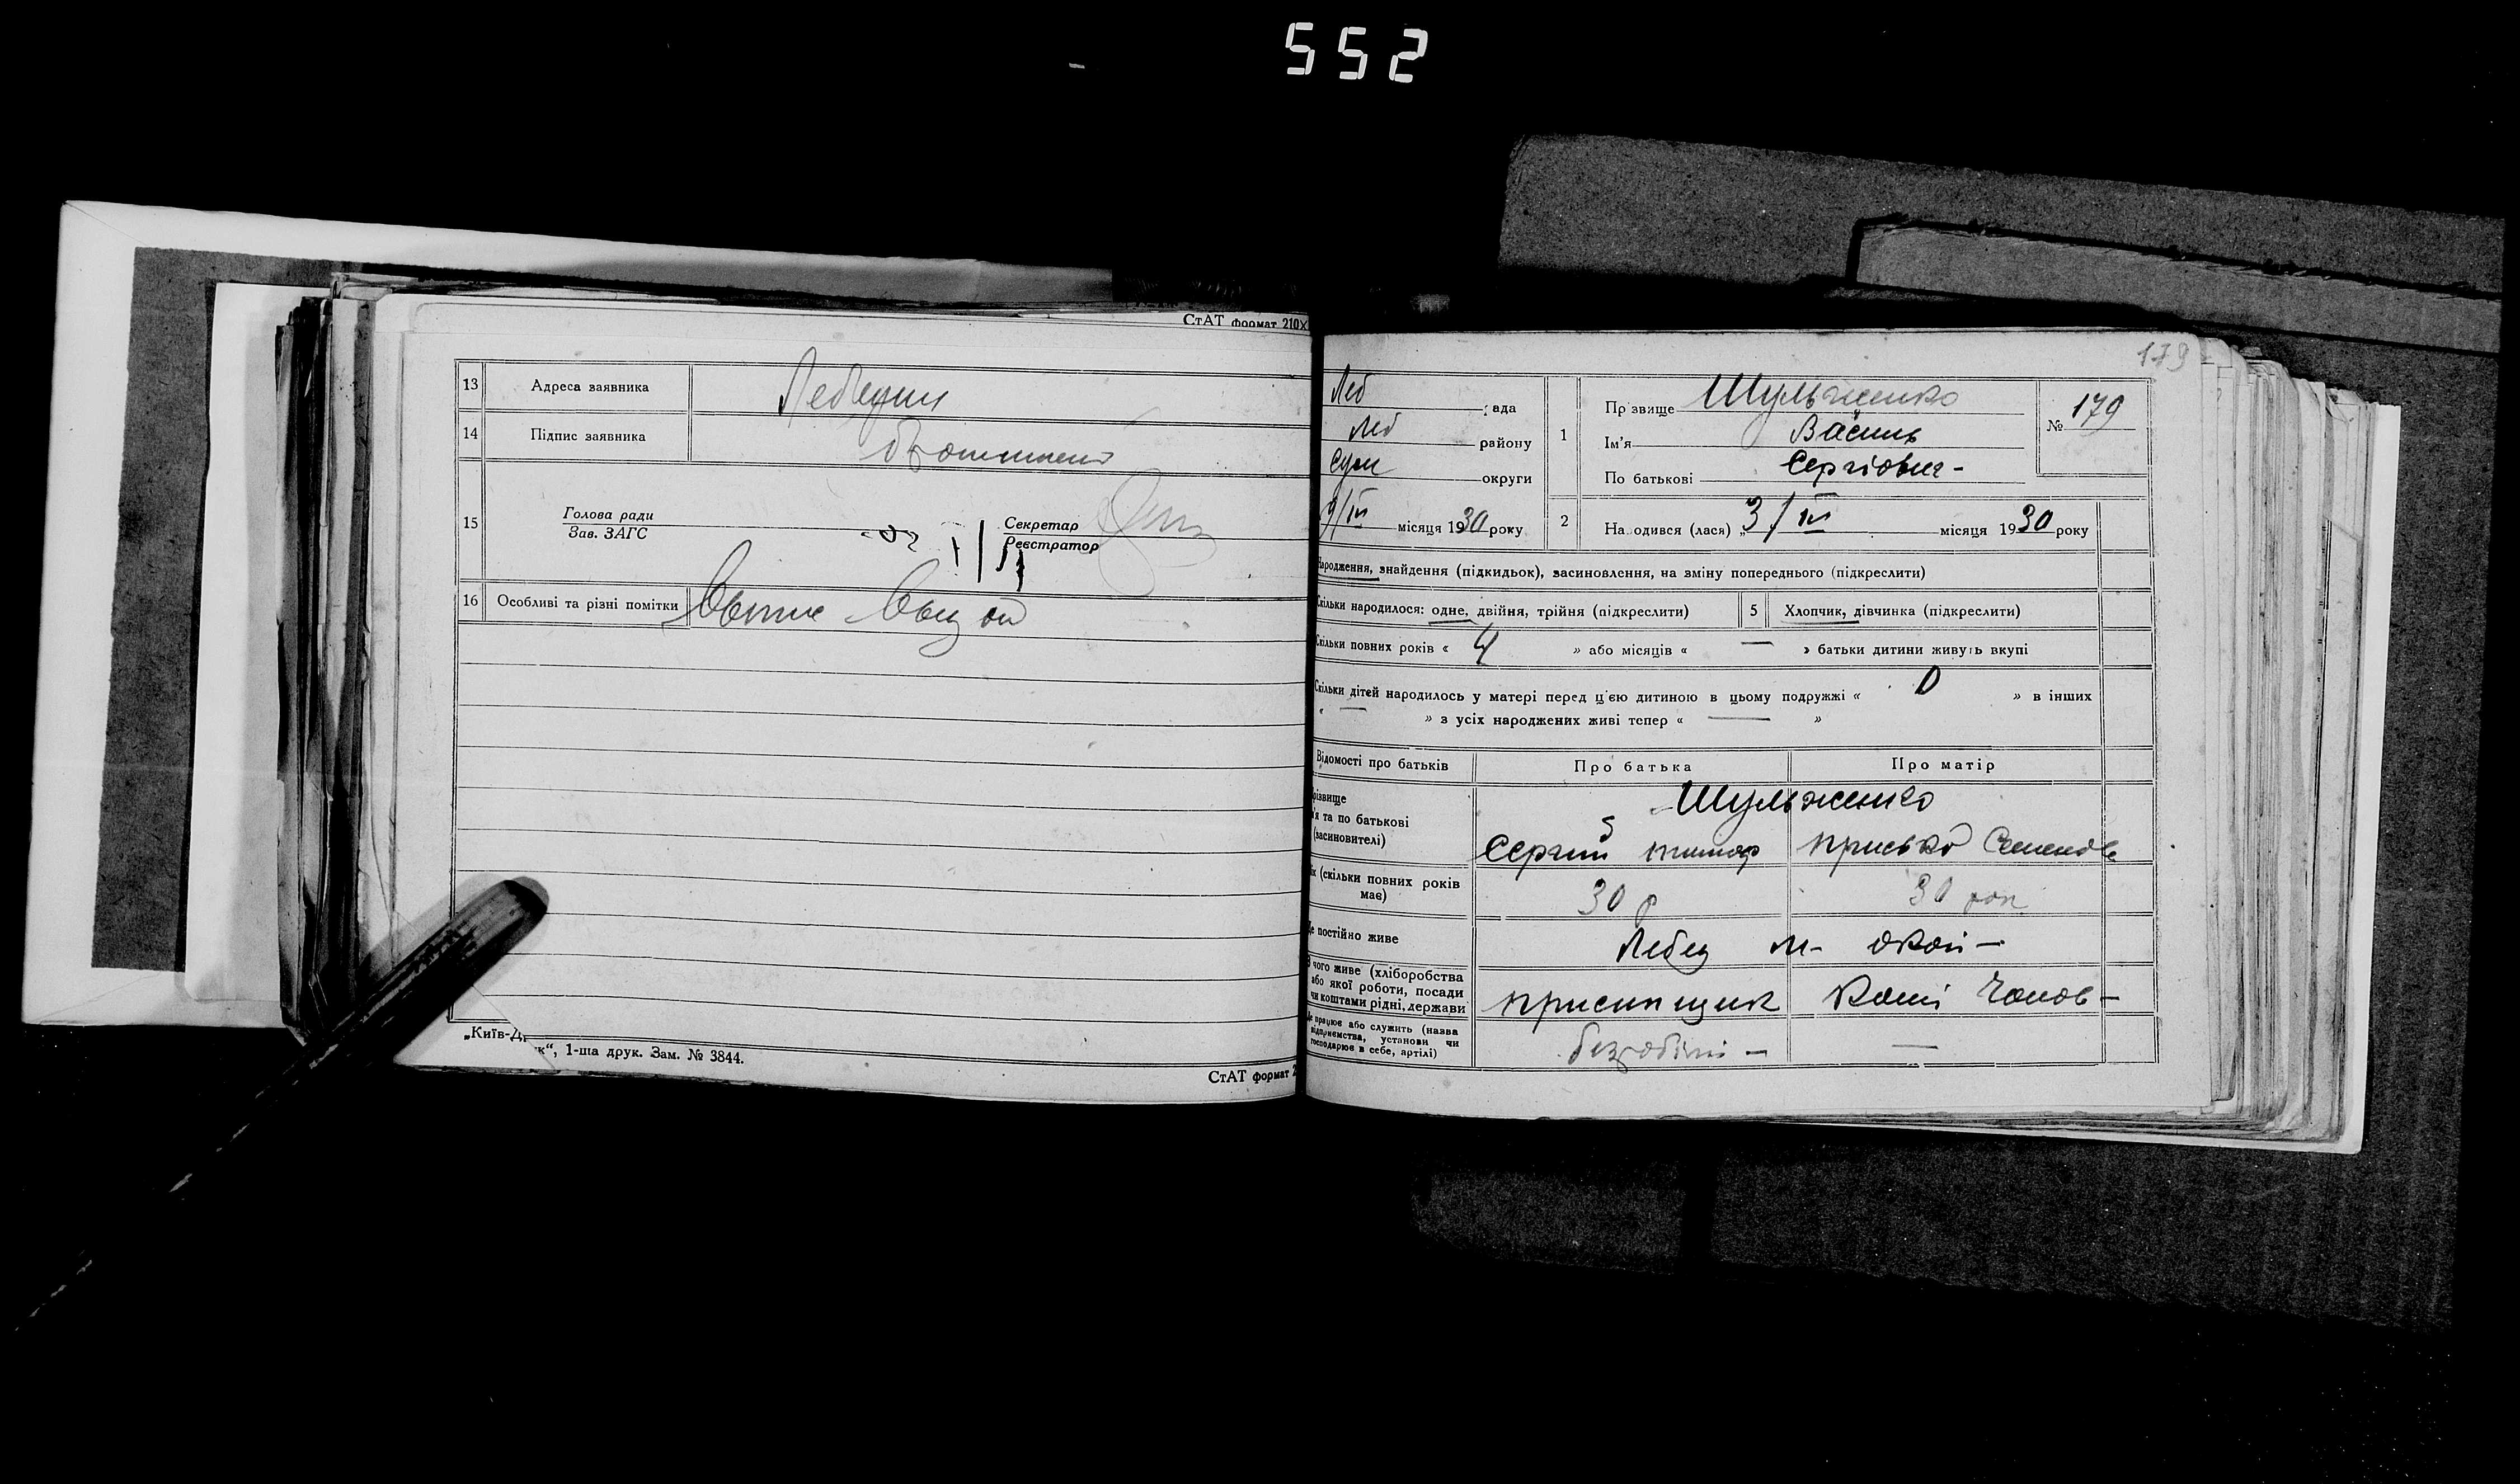 552
СтАТ формат 210х
13 Адреса заявника Лебедин
14 Підпис заявника
15 Голова ради
Зав. ЗАГС
Секретар
Реєстратор
16 Особливі та різні помітки
„Київ-Д
к“, 1-ша друк. Зам. № 3844.
СтАТ формат 2
179
Леб рада
Лед району
Сум округи
9/III місяця 1930 року
1 Прізвище Шульженко
Ім'я Василь
По батькові Сергіович-
№ 179
2 На одився (лася) „3/III місяця 1930 року
народження, знайдення (підкидьок), засиновлення, на зміну попереднього (підкреслити)
Скільки народилося: одне, двійня, трійня (підкреслити) 5 Хлопчик, дівчинка (підкреслити)
Скільки повних років « 4 » або місяців « — » батьки дитини живуть вкупі
Скільки дітей народилось у матері перед цією дитиною в цьому подружжі « 0 » в інших
« — » з усіх народжених живі тепер « — »
Відомості про батьків Про батька Про матір
різвище
'я та по батькові
(засиновителі)
Шульженко
Сергій тимоф Приська Семенов
ік (скільки повних років має) 30 р 30 рок
е постійно живе Лебед м-
чого живе (хліборобства
або якої роботи, посади
чи коштами рідні, держави
присипщик Кошт Чолов-
е працює або служить (назва
відприємства, установи чи
господарює в себе, артілі)
безробітн — —